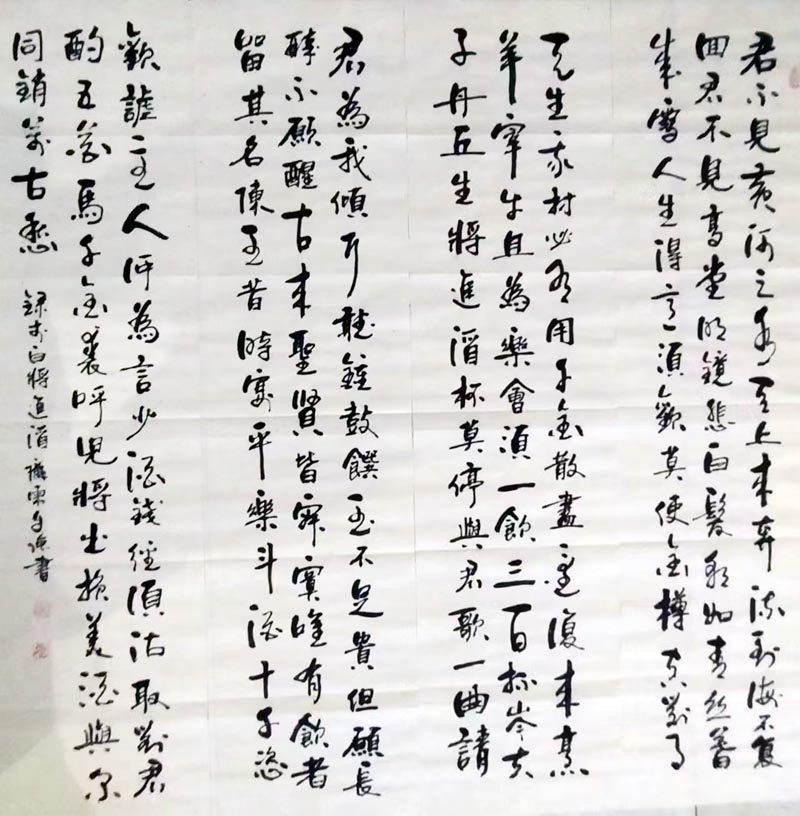 君不見黃河之水天上來奔流到海不復
回君不見高堂明鏡悲白髮朝如青丝暮
成雪人生得意須歡莫使金樽空對月
天生我材必有用千金散盡還復來烹
羊宰牛且為樂會須一飲三百杯岑夫
子丹丘生將進酒杯莫停與君歌一曲請
君為我傾耳聽鐘鼓饌玉不足貴但願長
醉不願醒古來聖賢皆寂寞唯有飲者
留其名陳王昔時宴平樂斗酒十千恣
歡謔主人何為言少酒錢徑須沽取對君
酌五花馬千金裘呼兒將出換美酒與尔
同銷萬古愁
録李白將進酒 書